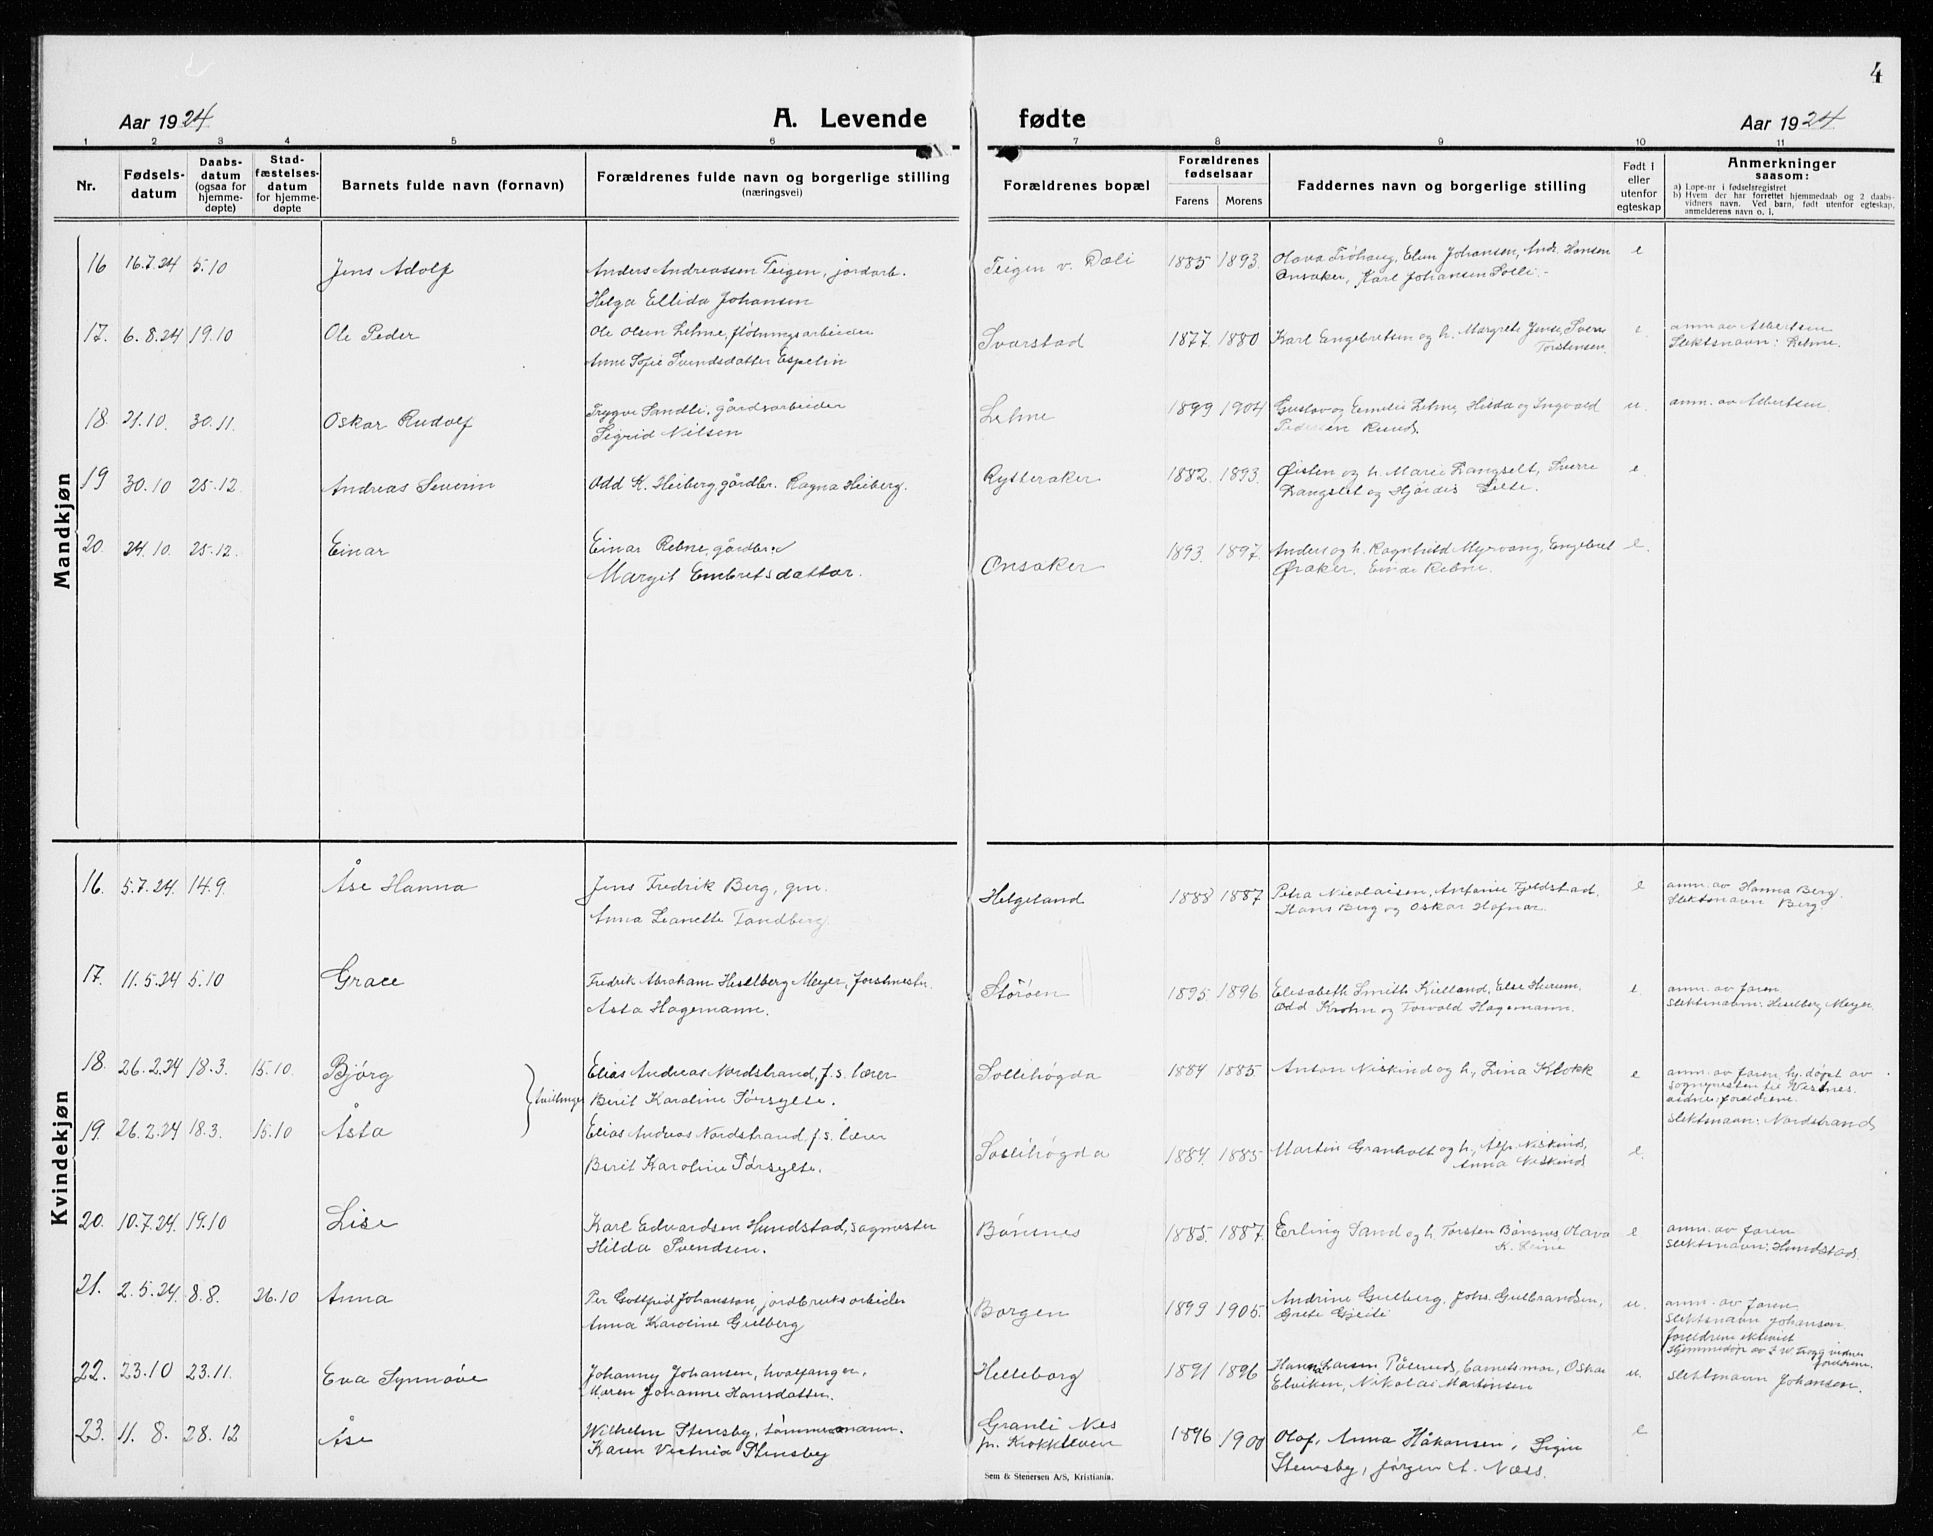 4
Aar 1924 A. Levende fødte Aar 1924
1 2 3 4 5 6 7 8 9 10 11
Nr.
Fødsels-
datum
Daabs-
datum
(ogsaa for
hjemme-
døpte)
Stad-
fæstelses-
datum
for hjemme-
døpte
Barnets fulde navn (fornavn)
Forældrenes fulde navn og borgerlige stilling
(næringsvei)
Forældrenes bopæl
Forældrenes
fødselsaar
Farens Morens
Faddernes navn og borgerlige stilling
Født i
eller
utenfor
egteskap
Anmerkninger
saasom:
a) Løpe-nr i fødselsregistret
b) Hvem der har forrettet hjemmedaab og 2 daabs-
vidners navn. Ved barn, født utenfor egteskap,
anmelderens navn o. l.
Mandkjøn
16 16.7.24 5.10 Jens Adolf Anders Andreassen Teigen, jordarb. Teigen v. Dæli 1885 1893. Olava Fröhaug, Elen Johansen, Andr. Hansen e
Helga Ellida Johansen Onsaker, Karl Johansen Solli.
17. 6.8.24 19.10 Ole Peder Ole Olsen Lehne, flötningsarbeider Svarstad 1877. 1880 Karl Engebretsen og h. Margrete Jensen, Sverre e anm. av Albertsen
Anne Sofie Svendsdatter Espelin Torstensen. Slektsnavn: Lehne.
18. 21.10. 30.11. Oskar Rudolf Trygve Sandli, gårdsarbeider Lehne 1899 1904 Gustav og Emelie Lehne, Hilda og Ingvald u. anm. av Albertsen.
Sigrid Nilsen Pedersen
19 30.10 25.12. Andreas Severin Odd K. Heiberg, gårdbr. Ragna Heiberg. Rytteraker 1882. 1893. Øisten og h. Marie Langselt, Sverre e.
Langslet og Hjördis
20. 24.10. 25.12. Einar Einar Rebne, gårdbr. Onsaker 1893. 1897. Anders og h. Ragnhild Myrvang, Engebret e.
Margit Embretsdatter. Øraker, Rebne.
Kvindekjøn
16. 5.7.24. 14.9. Åse Hanna Jens Fredrik Berg, gm. Helgeland 1888 1887 Petra Nicolaisen, Antonie Fjeldstad. e anm. av Hanna Berg.
Anna Leanette Tandberg. Hans Berg og Oskar Hafnor. Slektsnavn Berg.
17. 11.5.24 5.10 Grace Fredrik Abraham Heselberg Meyer, forstmester. Störöen 1895. 1896. Elisabeth Smith Kielland, Else Hurum. e. anm. av faren.
Asta Hagemann. Odd Krohn og Torvald Hagemann. Slektsnavn: Heselberg Meyer.
18. 26.2.24 18.3. 15.10. Bjørg Elias Andreas Nordstrand, f. s. lærer Sollihøgda 1884 1885. Anton Niskind og h., Lina Klokk e anm. av faren, hj. døpt av
tvillinger Berit Karoline Törsylte. sognepresten til Vestnes.
vidner: foreldrene.
19. 26.2.24 18.3. 15.10 Åsta Elias Andreas Nordstrand, f. s. lærer Slektsnavn: Nordstrand
Berit Karoline Törsylte. Sollihøgda 1884. 1885. Martin Granholt og h., Alf Niskind, e.
Anna Niskind
20. 10.7.24. 19.10 Lise Karl Edvardsen Hundstad, sagmester Bönsnes 1885. 1887. Erling Sand og h. Torsten Bönsnes, Olava e anm. av faren
Hilda Svendsen. K. Leine Slektsnavn: Hundstad.
21. 2.5.24. 8.8. 26.10 Anna Per Gottfried Johansson, jordbruksarbeider Borgen 1899 1905. Andrine Gulberg, Johs. Gulbrandsen, u. anm. av faren
Anna Karoline Gulberg Grete Gjeili Slektsnavn Johanson.
foreldrene ektevier
Hjemmedøpt av vidner foreldrene.
22. 23.10 23.11. Eva Synnöve Johanny Johansen, hvalfanger. Helleborg 1891 1896 Påleruds, barnets mor, Oskar u. Slektsnavn Johansen.
Maren Johanne Hansdatter. Elviken, Nikolai Martinsen
23. 11. 8. 28.12 Åse Wilhelm Stensby, tømmermann. Granli Nes 1896 1900 Olaf, Anna Håkonsen, Sigin e
Karen Stensby pr. Krokkleven Stensby, Jørgen A. Næss.
Sem & Stenersen A/S, Kristiania.